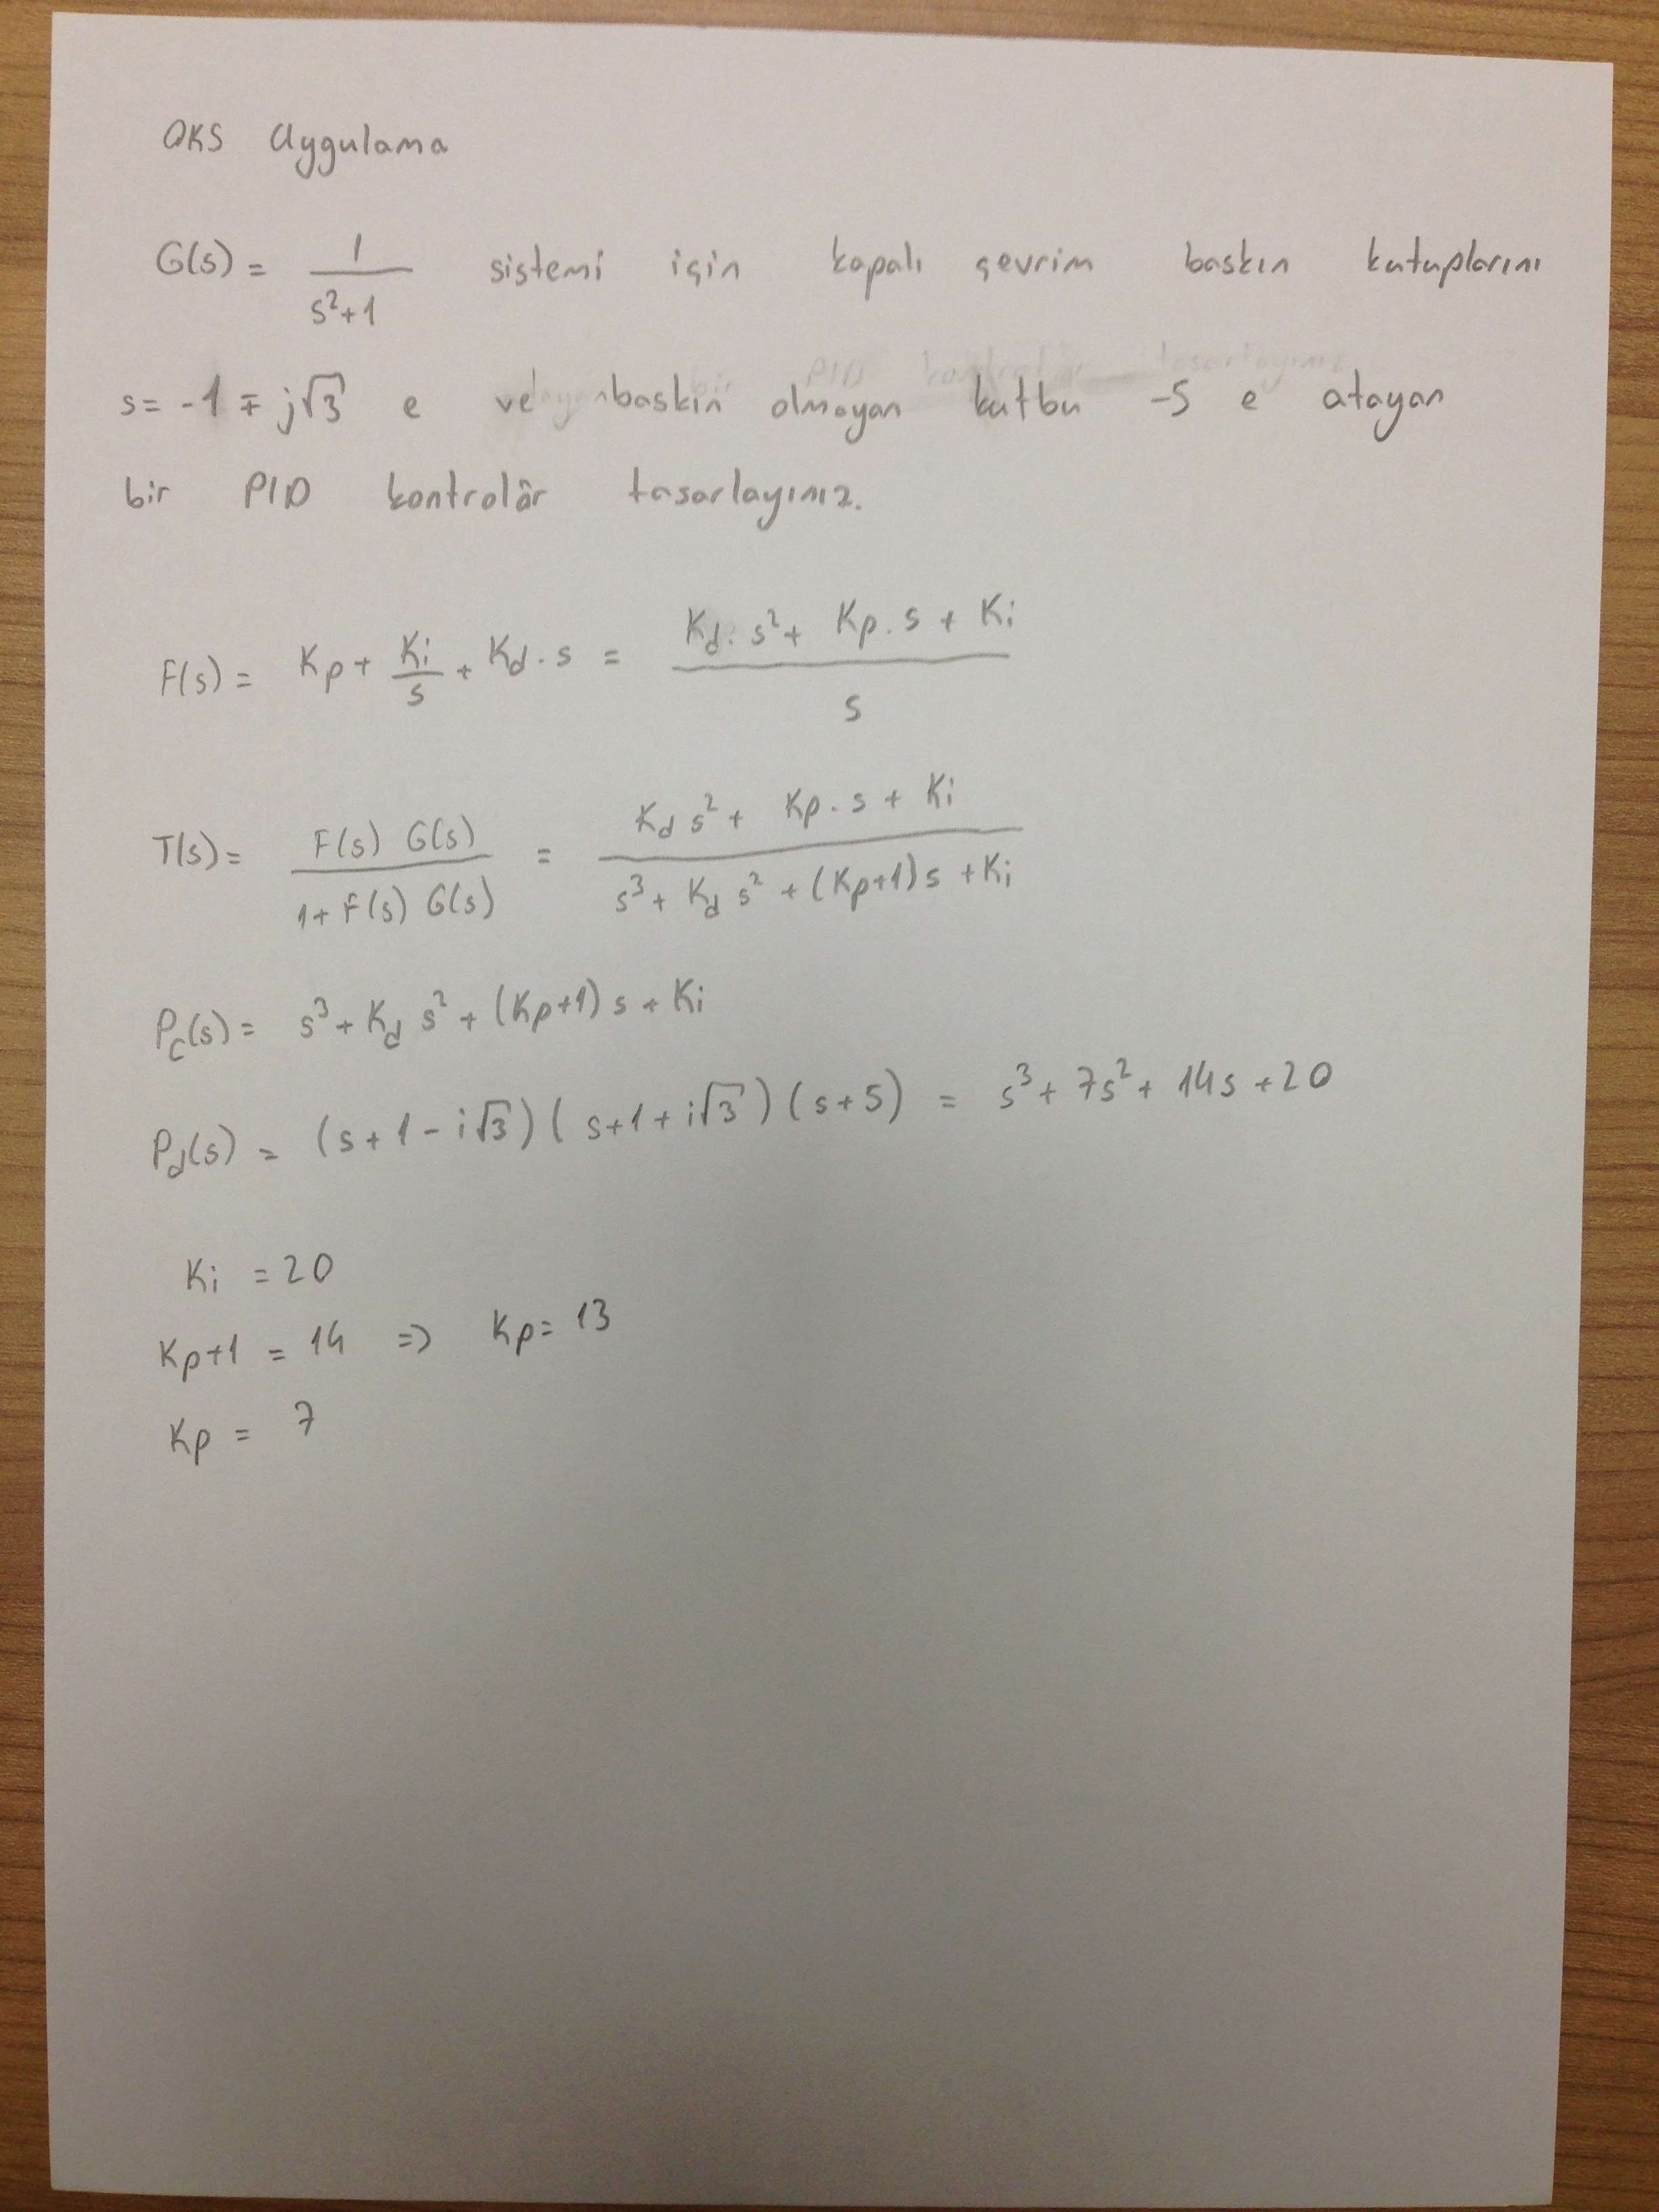 OKS Uygulama
G(s) = 1/(s²+1) sistemi için kapalı çevrim baskın kutuplarını
s = -1 ∓ j√3 e ve baskın olmayan kutbu -5 e atayan
bir PID kontrolör tasarlayınız.
F(s) = Kp + Ki/s + Kd . s = (Kd . s² + Kp . s + Ki)/s
T(s) = F(s) G(s)/(1 + F(s) G(s)) = (Kd s² + Kp . s + Ki)/(s³ + Kd s² + (Kp+1) s + Ki)
Pc(s) = s³ + Kd s² + (Kp+1) s + Ki
Pd(s) = (s + 1 - i√3) (s + 1 + i√3) (s + 5) = s³ + 7s² + 14s + 20
Ki = 20
Kp+1 = 14 => Kp = 13
Kp = 7